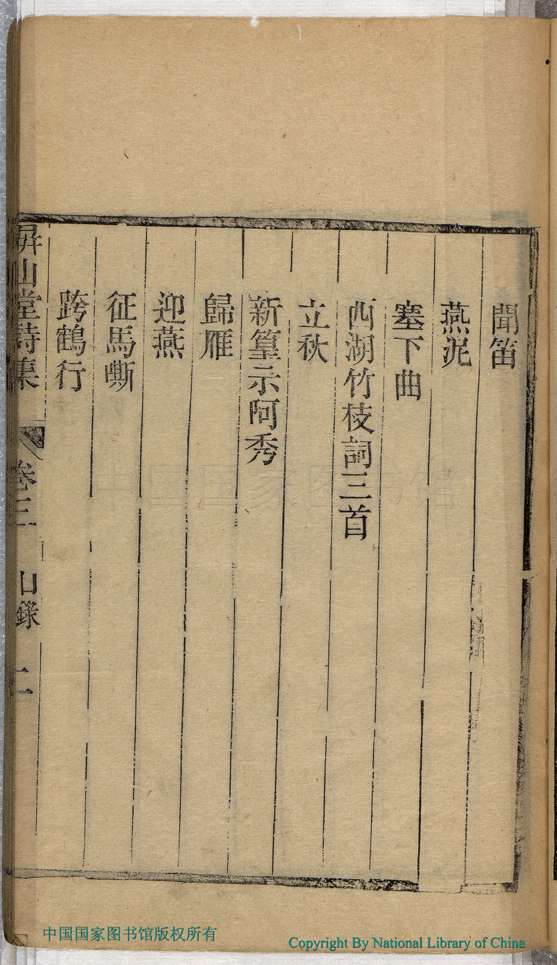 聞笛
燕泥
塞下曲
西湖竹枝詞三首
立秋
新篁示阿秀
歸雁
迎燕
征馬嘶
跨鶴行
屏山堂詩集
卷三
二
中国国家图书馆
中国国家图书馆版权所有
Copyright By National Library of China